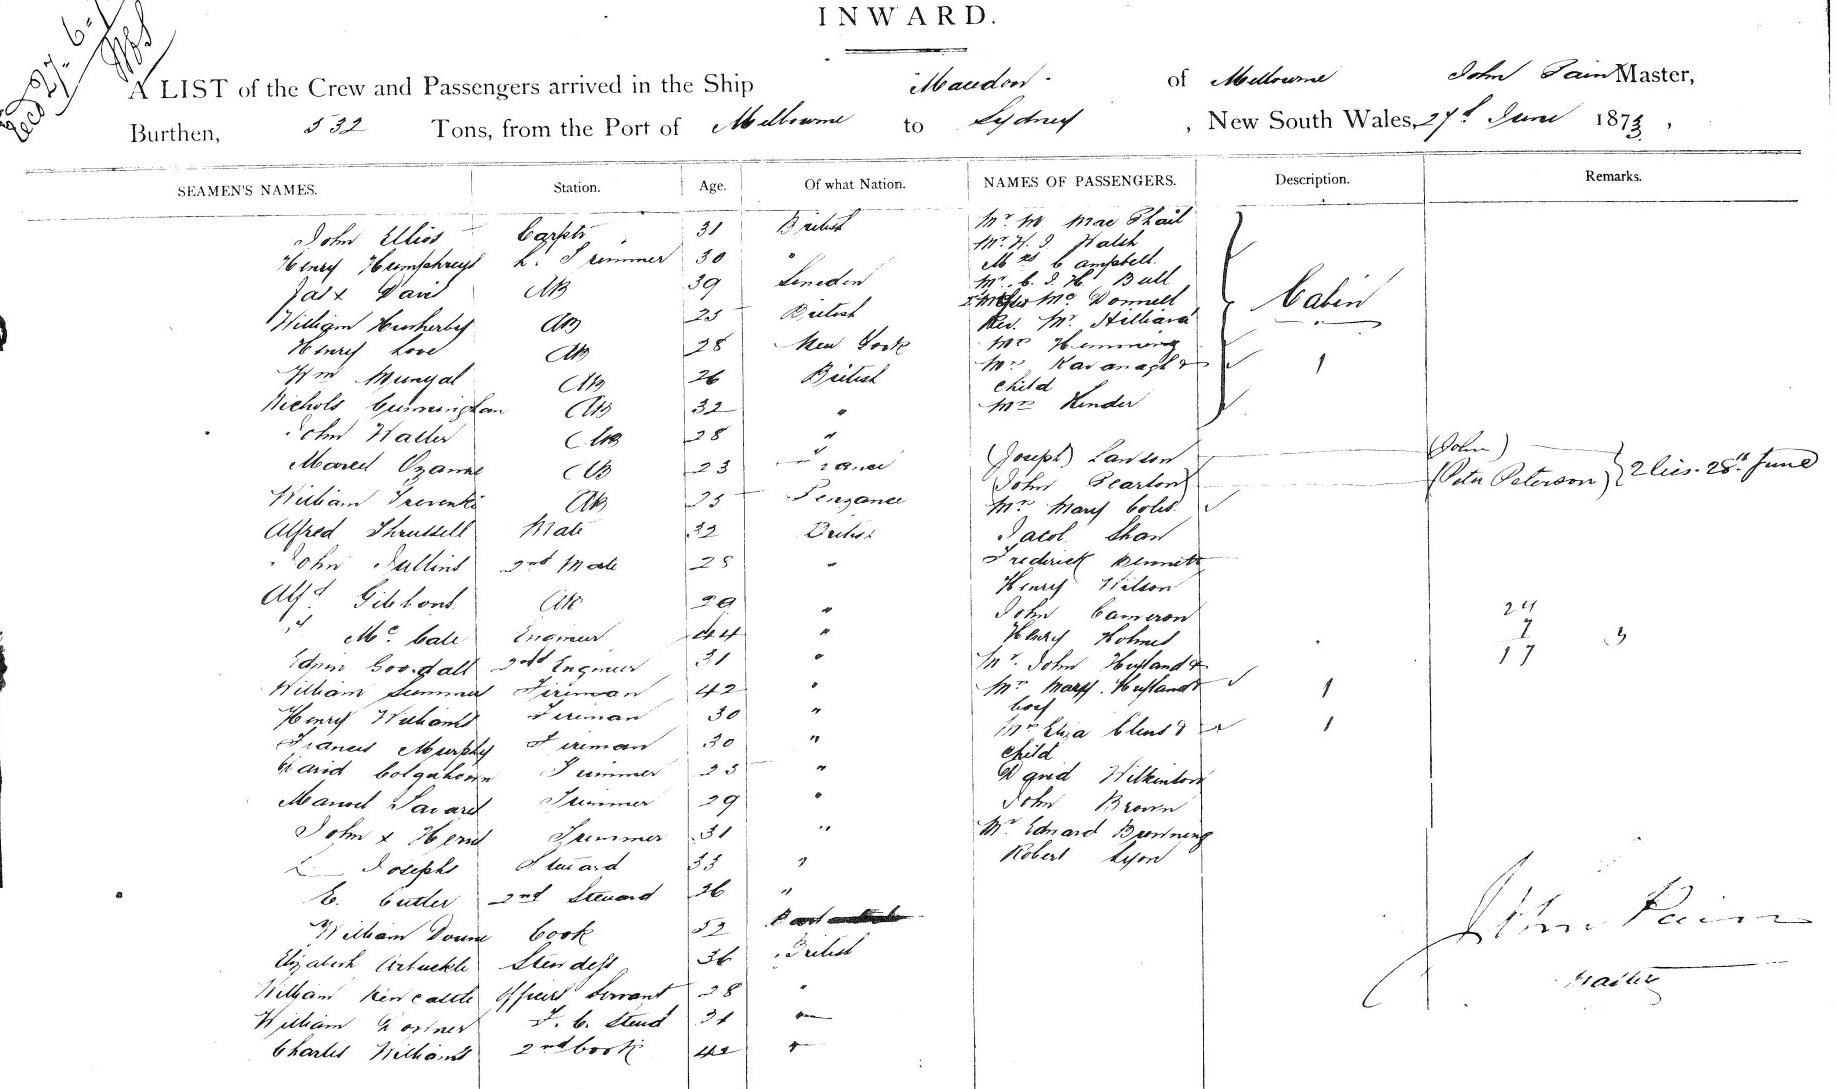 INWARD.
Recd 27-6-
A LIST of the Crew and Passengers arrived in the Ship Macedon of Melbourne John Pain Master,
Burthen, 532 Tons, from the Port of Melbourne to Sydney, New South Wales, 27th June 1873,
SEAMEN'S NAMES. Station. Age. Of what Nation. NAMES OF PASSENGERS. Description. Remarks.
John Ellios Carptr 31 British
Henry Humphreys L. Trimmer 30 "
Jas x Davis AB 39 London
William AB 25 British
Henry Love AB 28 New York
Wm Munyal AB 26 British
Nichols Cunningham AB 32 "
John Walter AB 28 "
Marcel Ozanne AB 23 France
William AB 25 Penzance
Alfred Thrussell Mate 32 British
John Jullins 2nd Mate 28 "
Alfd Gibbons AB 29 "
" McCale Engineer 44 "
Edwin Goodall 2nd Engineer 31 "
William Summer Fireman 42 "
Henry Williams Fireman 30 "
Francis Murphy Fireman 30 "
David Colquhoun Trimmer 25 "
Manuel Trimmer 29 "
John x Trimmer 31 "
L Josephs Steward 33 "
E. Cutler 2nd Steward 26 "
William Cook 52
Elizabeth Arbuckle Stewdess 36 British
William Officers Servant 28 "
William F. C. Stewd 31 "
Charles Williams 2nd Cook 42 "
Mr M Mac Phail
Mr H. J. Walsh
Mrs Campbell
Mr C. J. H. Bull
McDonnell
Rev. Mr Hilliard
Mrs Hemming
Mrs Kavanagh &
child
Mrs Hinder
Cabin
1
(Joseph) Lawson
(John Pearton)
Mrs Mary Coles
Jacob Shaw
Frederick Bennett
Henry Wilson
John Cameron
Henry Holmes
Mr John Hyland &
Mrs Mary Hyland &
boy
1
Mrs Eliza &
child
1
David Wilkinson
John Brown
Mr Edward Browning
Robert Lyon
(John)
(Peter Peterson) 28th June
24
7
17
3
John Pain
Master